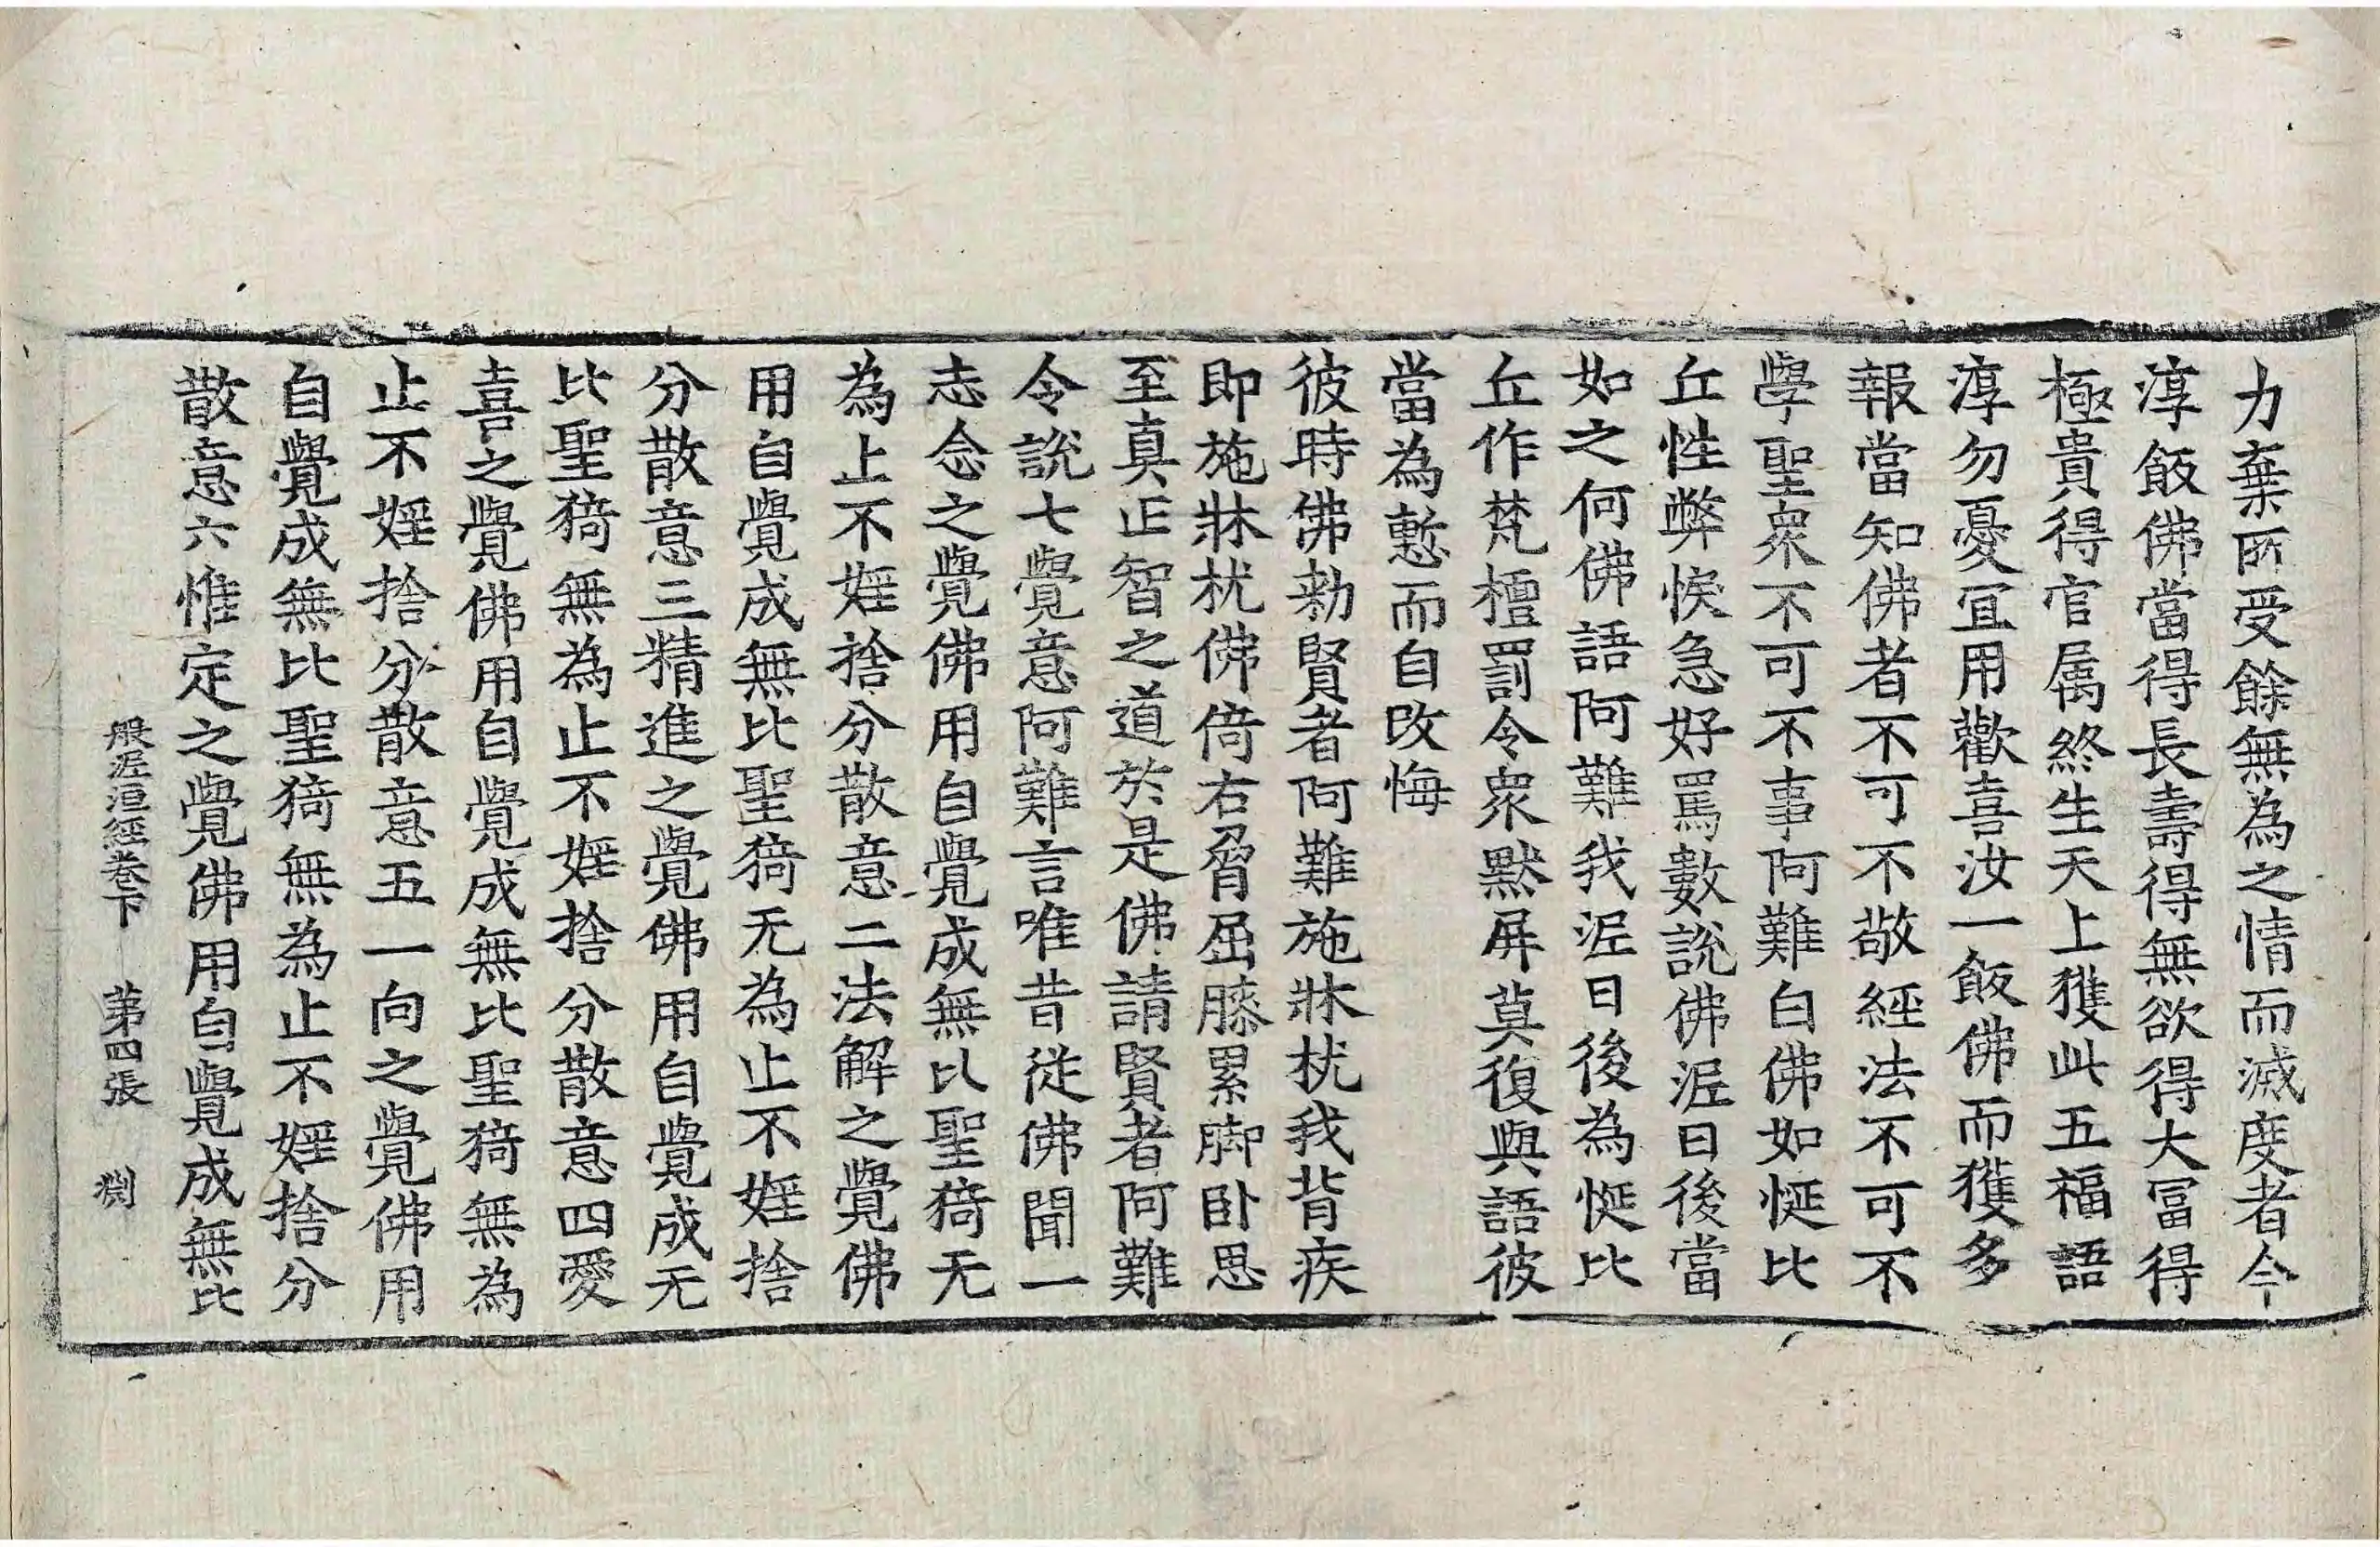 力棄所受餘無為之情而滅度者今
淳飯佛當得長壽得無欲得大冨得
極貴得官属終生天上獲此五福語
淳勿憂冝用歡喜汝一飯佛而獲多
報當知佛者不可不敬經法不可不
學聖衆不可不事阿難白佛如㤿比
丘性弊悷急好罵數說佛泥曰後當
如之何佛語阿難我泥曰後為㤿比
丘作梵檀罰令衆默屏莫復與語彼
當為慙而自改悔
彼時佛勑賢者阿難施牀枕我背疾
即施牀枕佛倚右脅屈膝累脚卧思
至真正智之道於是佛請賢者阿難
令說七覺意阿難言唯昔從佛聞一
志念之覺佛用自覺成無比聖猗无
為止不婬捨分散意二法解之覺佛
用自覺成無比聖猗无為止不婬捨
分散意三精進之覺佛用自覺成无
比聖猗無為止不婬捨分散意四愛
喜之覺佛用自覺成無比聖猗無為
止不婬捨分散意五一向之覺佛用
自覺成無比聖猗無為止不婬捨分
散意六惟定之覺佛用自覺成無比
般泥洹經卷下 第四張 渕